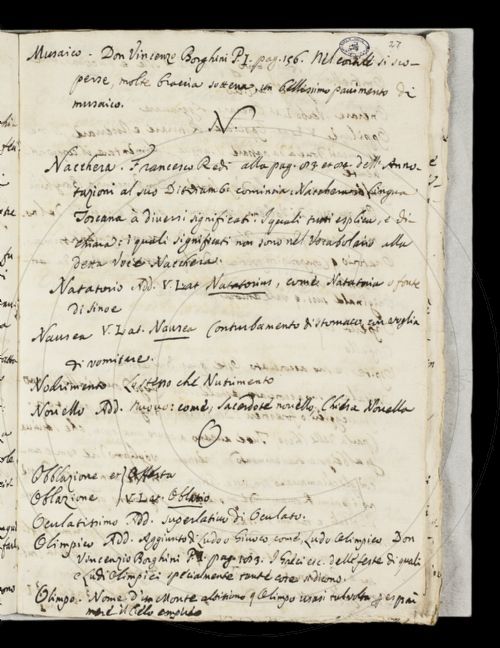 27
Musaico - Don Vincenzo Borghini P. I. pag. 156. Nel si sco-
perse, molte braccia sotterra, un bellissimo pavimento di
musaico.
N
Nacchera. Francesco Redi alla pag. et dell'Anno-
tazioni al suo Ditirambo comincia. Nacchera in Lingua
Toscana à diversi significati. I quali tutti esplica, e di-
chiara: i quali significati non sono nel Vocabolario alla
detta Voce Nacchera.
Natatorio Add. V. Lat. Natatorius, come Natatoria o fonte
di Siloe
Nausea V. Lat. Nausea Conturbamento di stomaco, con voglia
di vomitare.
Nodrimento Lo stesso che Nutrimento
Novello Add. Nuovo: come, Sacerdote novello, Chiesa Novella
O
Obblazione et Offerta
Oblazione V. Lat. Oblatio
Oculatissimo Add. Superlativo di Oculato.
Olimpico Add. Aggiunto di Ludo o Giuoco come, Ludo Olimpico Don
Vincenzio Borghini P. pag. I Greci etc. delle feste di quali
e Ludi Olimpici specialmente tante cose si dicono.
Olimpo. Nome d'un Monte altissimo Olimpo usasi talvolta
il Cielo empireo